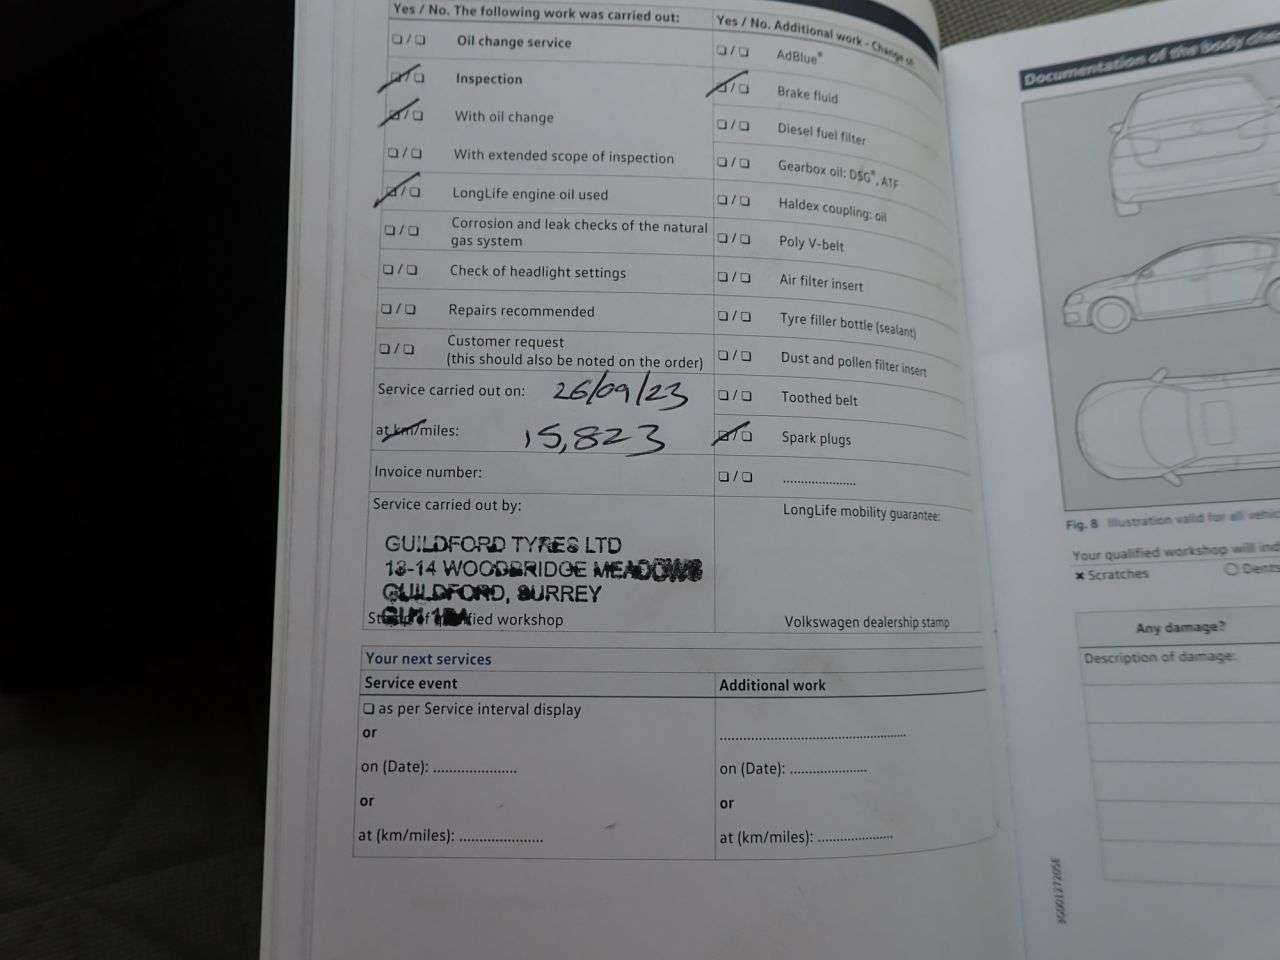 Yes / No. The following work was carried out:
❏ / ❏ Oil change service
❏ / ❏ Inspection
❏ / ❏ With oil change
❏ / ❏ With extended scope of inspection
❏ / ❏ LongLife engine oil used
❏ / ❏ Corrosion and leak checks of the natural
gas system
❏ / ❏ Check of headlight settings
❏ / ❏ Repairs recommended
❏ / ❏ Customer request
(this should also be noted on the order)
Service carried out on: 26/09/23
at km/miles: 15,823
Invoice number:
Service carried out by:
GUILDFORD TYRES LTD
13-14 WOODBRIDGE MEADOWS
GUILDFORD, SURREY
Stamp of qualified workshop
Yes / No. Additional work - Change of:
❏ / ❏ AdBlue®
❏ / ❏ Brake fluid
❏ / ❏ Diesel fuel filter
❏ / ❏ Gearbox oil: DSG®, ATF
❏ / ❏ Haldex coupling: oil
❏ / ❏ Poly V-belt
❏ / ❏ Air filter insert
❏ / ❏ Tyre filler bottle (sealant)
❏ / ❏ Dust and pollen filter insert
❏ / ❏ Toothed belt
❏ / ❏ Spark plugs
❏ / ❏ .....................
LongLife mobility guarantee:
Volkswagen dealership stamp
Your next services
Service event
❏ as per Service interval display
or
on (Date): .....................
or
at (km/miles): .....................
Additional work
..............................................
on (Date): .....................
or
at (km/miles): .....................
Documentation of the body
Fig. 8 Illustration valid for all
Your qualified workshop will
× Scratches ○ Dents
Any damage?
Description of damage: